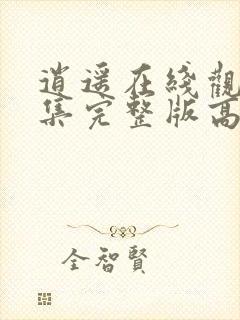 逍遥在綫觀
集完整版高
全智賢